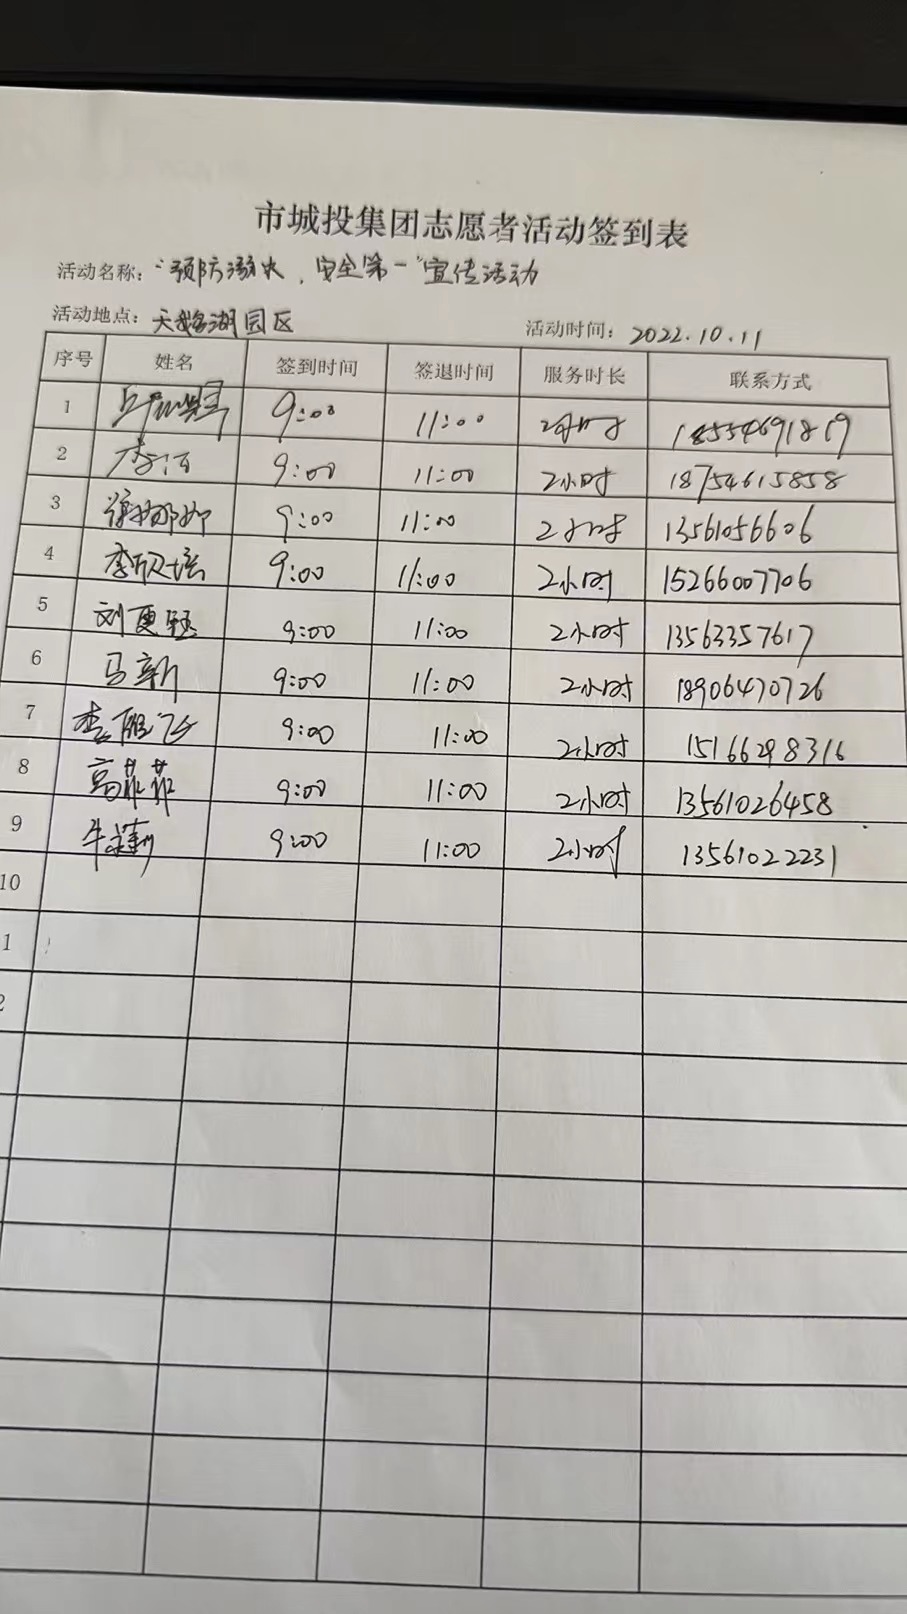 市城投集团志愿者活动签到表
活动名称：“预防溺水，安全第一”宣传活动
活动地点：天鹅湖园区 活动时间：2022.10.11
序号 姓名 签到时间 签退时间 服务时长 联系方式
1 9:00 11:00 2小时
2 9:00 11:00 2小时 18754615858
3 徐娜娜 9:00 11:00 2小时 13561056606
4 李欣培 9:00 11:00 2小时 15266007706
5 刘更钰 9:00 11:00 2小时 13563357617
6 马新 9:00 11:00 2小时 18906470726
7 9:00 11:00 2小时 15166298316
8 高菲菲 9:00 11:00 2小时 13561026458
9 9:00 11:00 2小时 13561022231
10
1
2